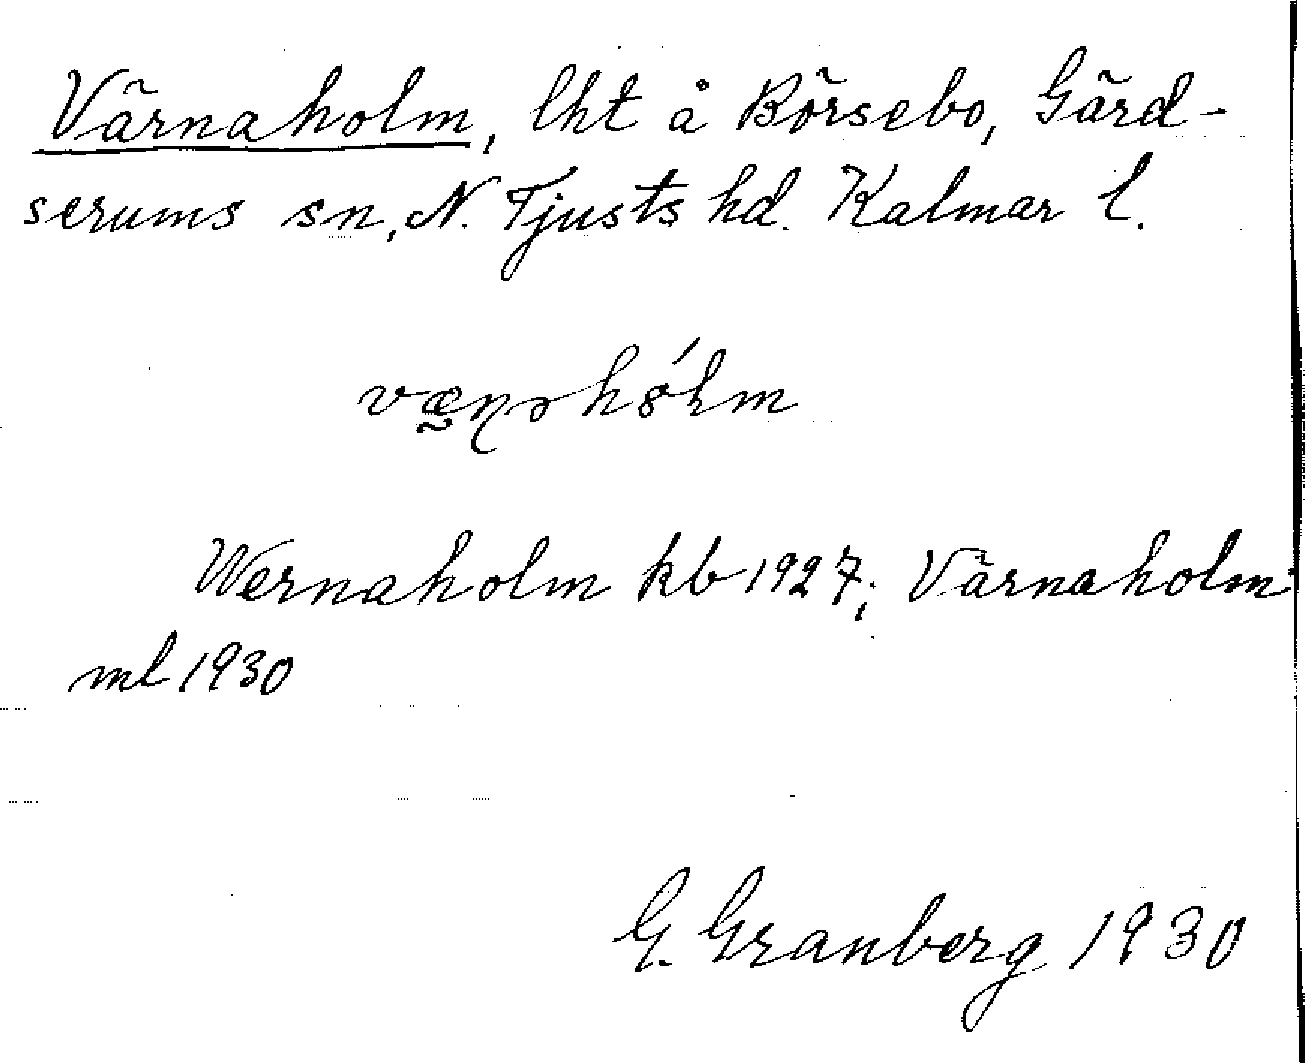 Värnaholm, lht å Börsebo, Gärd-
serums sn, N. Tjusts hd. Kalmar l.
Wernaholm kb 1927; Värnaholm
ml 1930
G. Granberg 1930